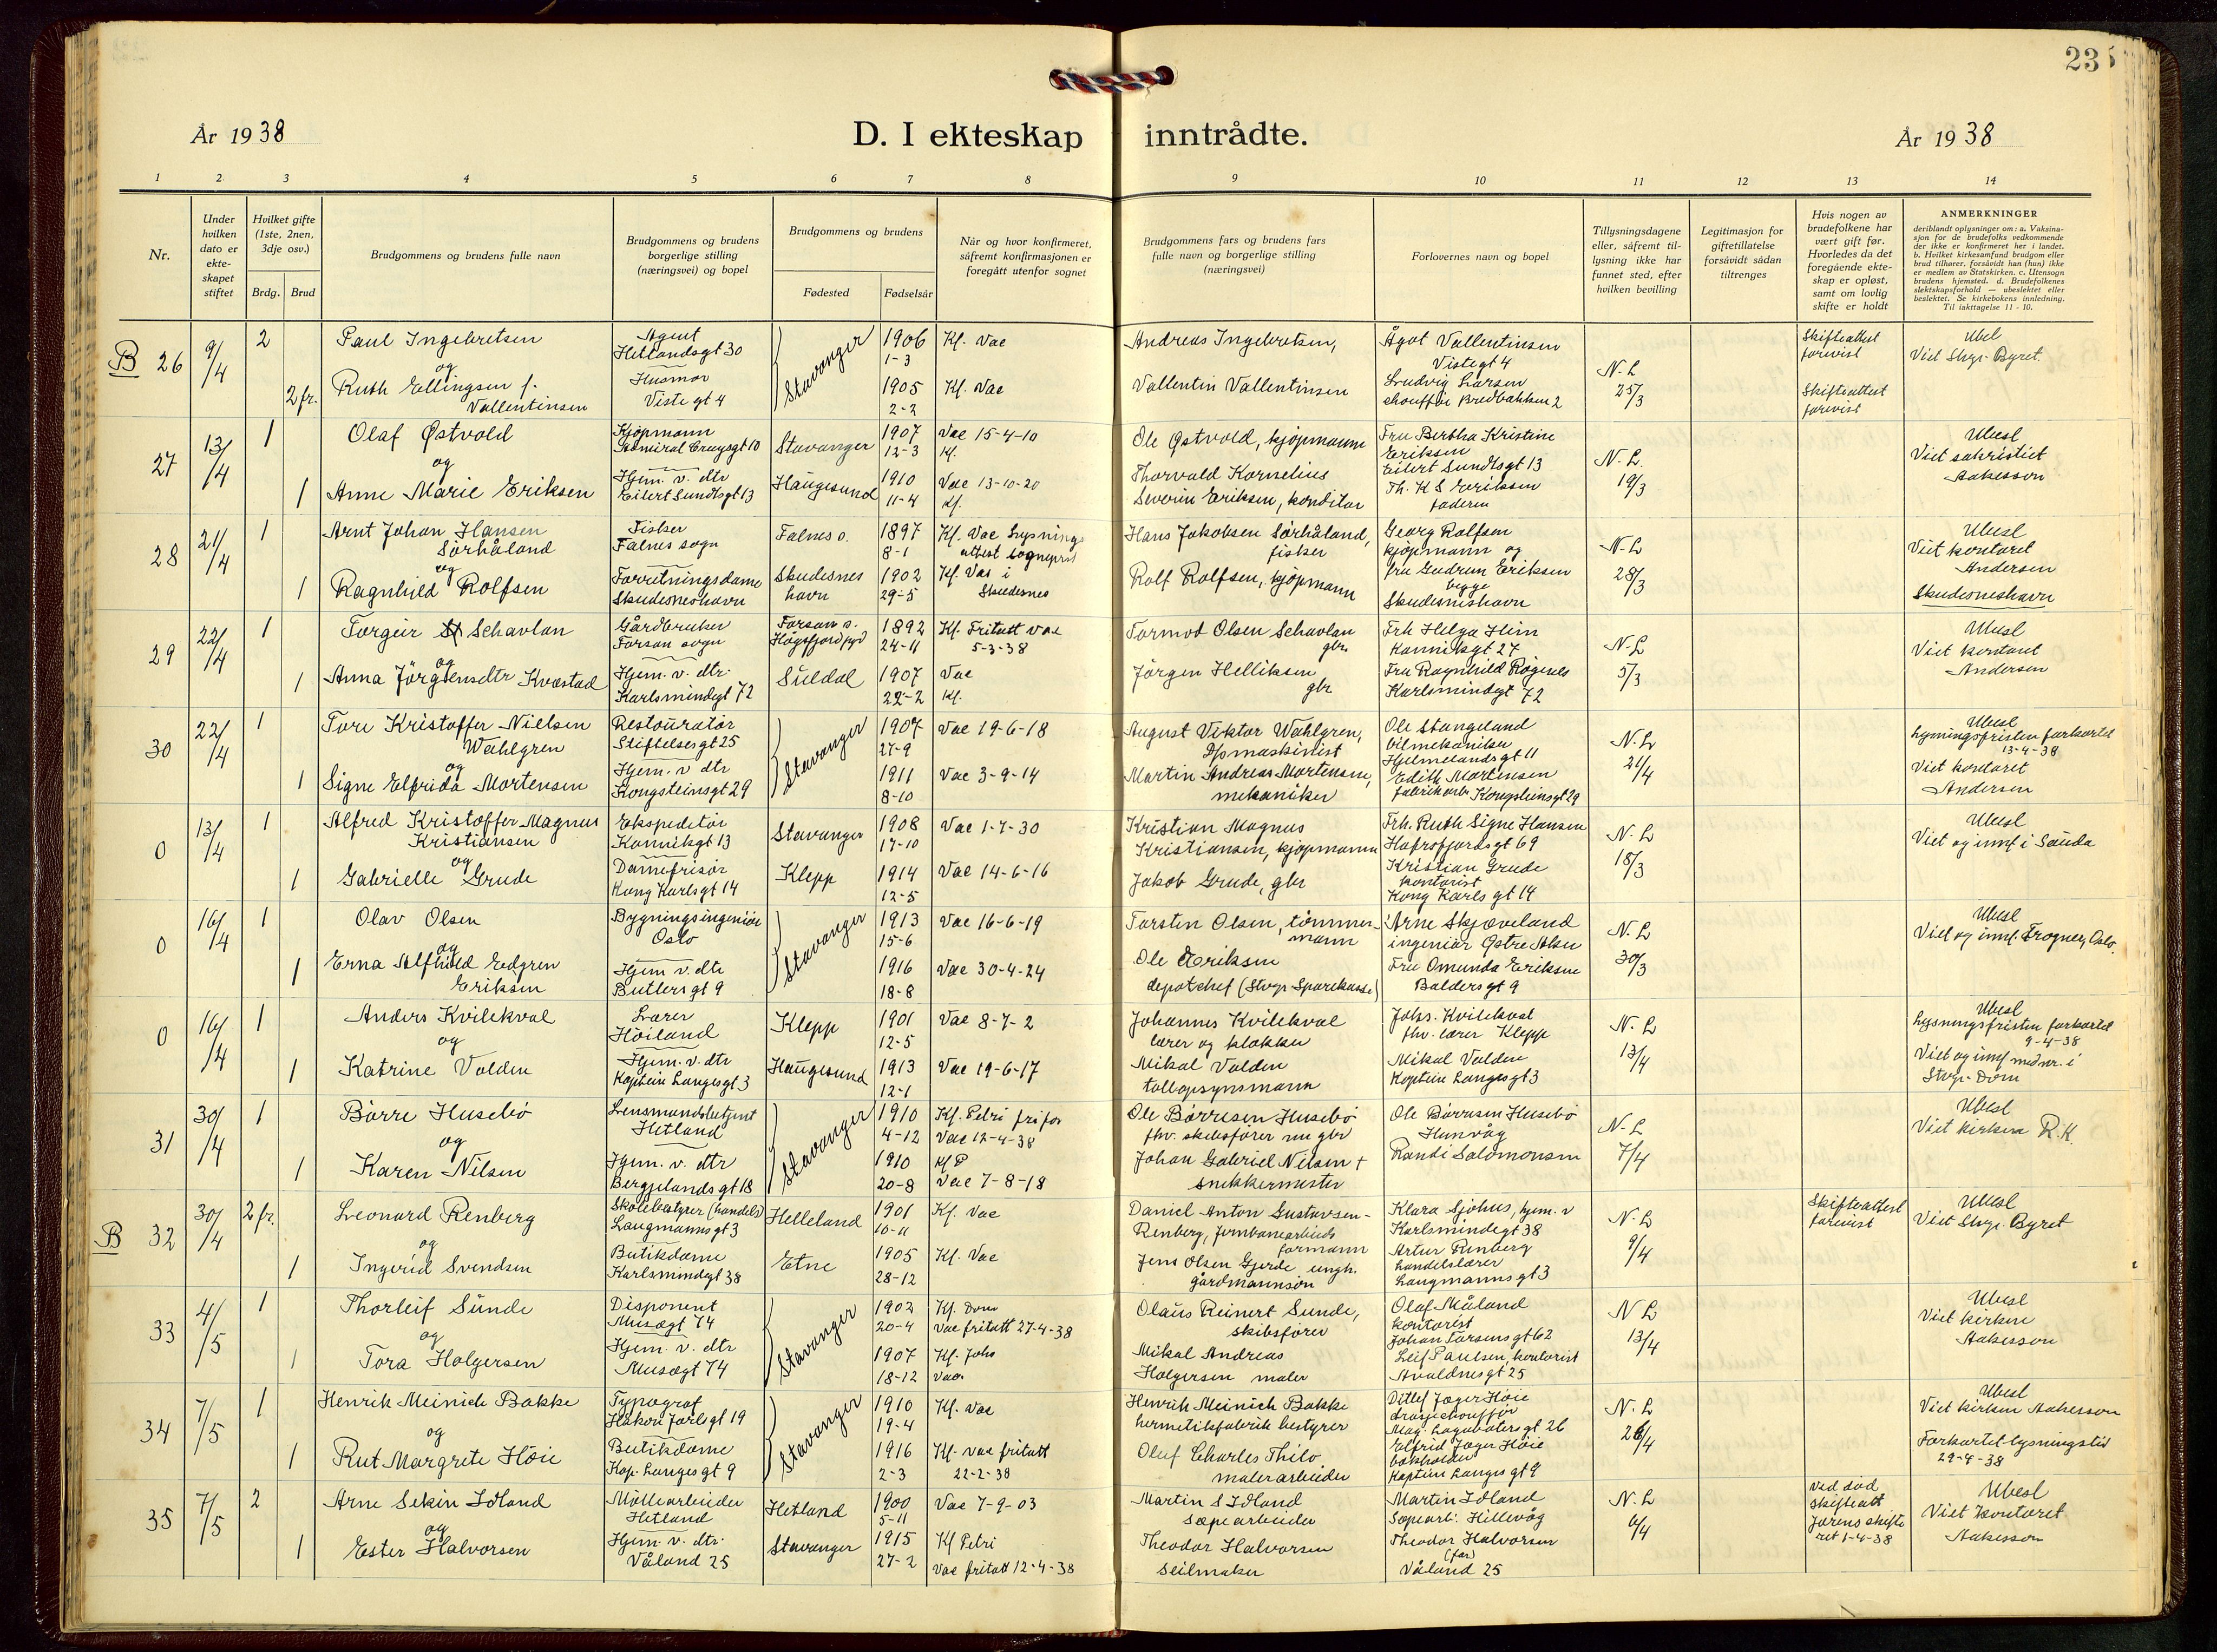 235
År 1938
D. I ekteskap inntrådte.
År 1938
1 2 3 4 5 6 7 8 9 10 11 12 13 14
Nr.
Under hvilken dato er ekte- skapet stiftet
Hvilket gifte (1ste, 2nen, 3dje osv.)
Brdg. Brud
Brudgommens og brudens fulle navn
Brudgommens og brudens borgerlige stilling (næringsvei) og bopel
Brudgommens og brudens
Fødested Fødselsår
Når og hvor konfirmeret, såfremt konfirmasjonen er foregått utenfor sognet
Brudgommens fars og brudens fars fulle navn og borgerlige stilling (næringsvei)
Forlovernes navn og bopel
Tillysningsdagene eller, såfremt til- lysning ikke har funnet sted, efter hvilken bevilling
Legitimasjon for giftetillatelse forsåvidt sådan tiltrenges
Hvis nogen av brudefolkene har vært gift før. Hvorledes da det foregående ekte- skap er opløst, samt om lovlig skifte er holdt
ANMERKNINGER
deriblandt oplysninger om: a. Vaksina- sjon for de brudefolks vedkommende der ikke er konfirmeret her i landet. b. Hvilket kirkesamfund brudgom eller brud tilhører, forsåvidt han (hun) ikke er medlem av Statskirken. c. Utensogn brudens hjemsted. d. Brudefolkenes slektskapsforhold — ubeslektet eller beslektet. Se kirkebokens innledning. Til iakttagelse 11 - 10.
B 26 9/4 2 Paul Ingebretsen Agent Hetlandsgt 30 Stavanger 1906 1-3 Kf. Vac Andreas Ingebretsen, Ågot Vallentinsen Vistegt 4 N-L 25/3 Skifteattest forevist Ubel Viet Stvgr. Byret.
og
2 fr. Ruth Ellingsen f. Vallentinsen Husmor Viste gt 4 1905 2-2 Kf. Vac Vallentin Vallentinsen Ludvig Larsen chouffør Bredbakken 2 Skifteattest forevist
27 13/4 1 Olaf Østvold Kjøpmann Admiral Cruysgt 10 Stavanger 1907 12-3 Vac 15-4-10 Kf. Ole Østvold, kjøpmann Fru Bertha Kristine Eriksen Eilert Sundtsgt 13 N-L. 19/3 Ubesl Viet sakristiet Aakesson
og
1 Anne Marie Eriksen Hjem. v. dtr Eilert Sundtsgt 13 Haugesund 1910 11-4 Vac 13-10-20 Kf. Thorvald Kornelius Severin Eriksen, konditor Th. K S Eriksen faderen
28 21/4 1 Arnt Johan Hansen Sørhåland Fisker Falnes sogn Falnes s. 1897 8-1 Kf. Vac Lysnings attest sogneprst Hans Jakobsen Sørhåland, fisker Georg Rolfsen kjøpmann og N-L 28/3 Ubesl Viet kontoret Andersen
og
1 Ragnhild Rolfsen Forretningsdame Skudesneshavn Skudesnes havn 1902 29-5 Kf. Vac i Skudesnes Rolf Rolfsen, kjøpmann fru Gudrun Eriksen begge Skudesneshavn Skudesneshavn
29 22/4 1 Torger Schavlan Gårdbruker Forsan sogn Forsan s. Høgsfjord pgd 1892 24-11 Kf. Fritatt vac 5-3-38 Tormod Olsen Schavlan gbr. Frk Helga Heim Kanniksgt 27 N-L 5/3 Ubesl Viet kontoret Andersen
og
1 Anna Jørgensdtr Kvæstad Hjem. v. dtr. Karlsmindegt 72 Suldal 1907 22-2 Vac Kf. Jørgen Helliksen gbr Fru Ragnhild Røgenes Karlsmindegt 72
30 22/4 1 Tore Kristoffer Nielsen Wahlgren Restauratør Stiftelsesgt 25 Stavanger 1907 27-9 Vac 19-6-18 August Viktor Wahlgren, Ole Stangeland bilmekaniker Hjelmelandsgt 11 N-L 21/4 Ubesl lysningsfristen forkortet 13-4-38 Viet kontoret Andersen
og
1 Signe Elfrida Mortensen Hjem. v dtr Kongsteinsgt 29 1911 8-10 Vac 3-9-14 Martin Andreas Mortensen, mekaniker Edith Mortensen fabrikarb Kongsteinsgt 29
0 13/4 1 Alfred Kristoffer Magnus Kristiansen Ekspeditør Kanniksgt 13 Stavanger 1908 17-10 Vac 1-7-30 Kristian Magnus Kristiansen, kjøpmann Frk. Ruth Signe Hansen Hafrsfjordsgt 69 N-L 18/3 Ubesl Viet og innf i Sauda
og
1 Gabrielle Grude Damefrisør Kong Karlsgt 14 Klepp 1914 12-5 Vac 14-6-16 Jakob Grude, gbr Kristian Grude kontorist Kong Karls gt 14
0 16/4 1 Olav Olsen Bygningsingeniør Oslo Stavanger 1913 15-6 Vac 16-6-19 Torsten Olsen, tømmermann Arne Skjæveland ingeniør Østre Aker N-L. 30/3 Ubesl Viet og innf. Frogner, Oslo.
og
1 Erna Alfhild Edgren Eriksen Hjem v. dtr Butlers gt 9 1916 18-8 Vac 30-4-24 Ole Eriksen depotchef (Stvgr Sparekasse) Fru Omunda Eriksen Balders gt 9
0 16/4 1 Anders Kvilekval Lærer Höiland Klepp 1901 12-5 Vac 8-7-2 Johannes Kvilekval lærer og klokker Johs. Kvilekval fhv. lærer Klepp N-L 13/4 Ubesl Lysningsfristen forkortet 9-4-38
og
1 Katrine Valden Hjem. v. dtr Kaptein Langesgt 3 Haugesund 1913 12-1 Vac 19-6-17 Mikal Valden tollopsynsmann Mikal Valden Kaptein Langesgt 3 Viet og innf med nr. i Stvgr. Dom
31 30/4 1 Börre Husebö Lensmannsbetjent Hetland Stavanger 1910 4-12 Kf. Petri fri for Vac 12-4-38 Ole Börresen Husebö fhv. skibsfører nu gbr Ole Börresen Husebö Hunvåg N-L. 7/4 Ubesl Viet kirken R.K.
og
1 Karen Nilsen Hjem. v. dtr Bergjelands gt 18 1910 20-8 Kf P Vac 7-8-18 Johan Gabriel Nilsen + snekkermester Randi Salomonsen
B 32 30/4 2 fr. Leonard Renberg Skolebestyrer (handels) Laugmannsgt 3 Helleland 1901 10-11 Kf. Vac Daniel Anton Gustavsen- Renberg, Jernbanearbeids formann Klara Sjøhus, hjem. v Karlsmindegt 38 N-L 9/4 Skifteattest forevist Ubesl Viet Stvgr. Byret
og
1 Ingerid Svendsen Butikdame Karlsmindegt 38 Etne 1905 28-12 Kf. Vac Jens Olsen Gjerde ungk. gårdmannsøn Artur Renberg handelslærer Laugmannsgt 3
33 4/5 1 Thorleif Sunde Disponent Musægt 74 Stavanger 1902 20-4 Kf. Dom Vac fritatt 27-4-38 Olaus Reinert Sunde, skibsfører Olaf Måland kontorist Johan Torsensgt 62 N L 13/4 Ubesl Viet kirken Aakesson
og
1 Tora Holgersen Hjem. v. dtr Musægt 74 1907 18-12 Kf. Johs Vac. Mikal Andreas Holgersen maler Leif Paulsen, kontorist Avaldnesgt 25
34 7/5 1 Henrik Meinich Bakke Typograf Håkon Jarls gt 19 Stavanger 1910 19-4 Kf. Vac Henrik Meinich Bakke hermetikfabrik bestyrer Ditlef Jæger Höie drosjechouffør Mag. Lagabøters gt 26 N-L 26/4 Ubesl Viet kirken Aakesson
og
1 Rut Margrete Höie Butikdame Kap. Langes gt 9 1916 2-3 Kf. vac fritatt 22-2-38 Oluf Charles Thilo malerarbeider Elfrid Jæger Höie bokholder Kaptein Langes gt 9 Forkortet lysningstid 29-4-38
35 7/5 2 Arne Sekin Idland Möllearbeider Hetland Hetland 1900 5-11 Vac 7-9-03 Martin S Idland sæpearbeider Martin Idland Sæpearb. Hillevåg N-L 6/4 Ved död skifteatt Jærens skifte ret 1-4-38 Ubesl Viet kontoret Aakesson
og
1 Ester Halvorsen Hjem. v. dtr. Våland 25 Stavanger 1915 27-2 Kf Petri Vac fritatt 12-4-38 Theodor Halvorsen seilmaker Theodor Halvorsen (far) Våland 25